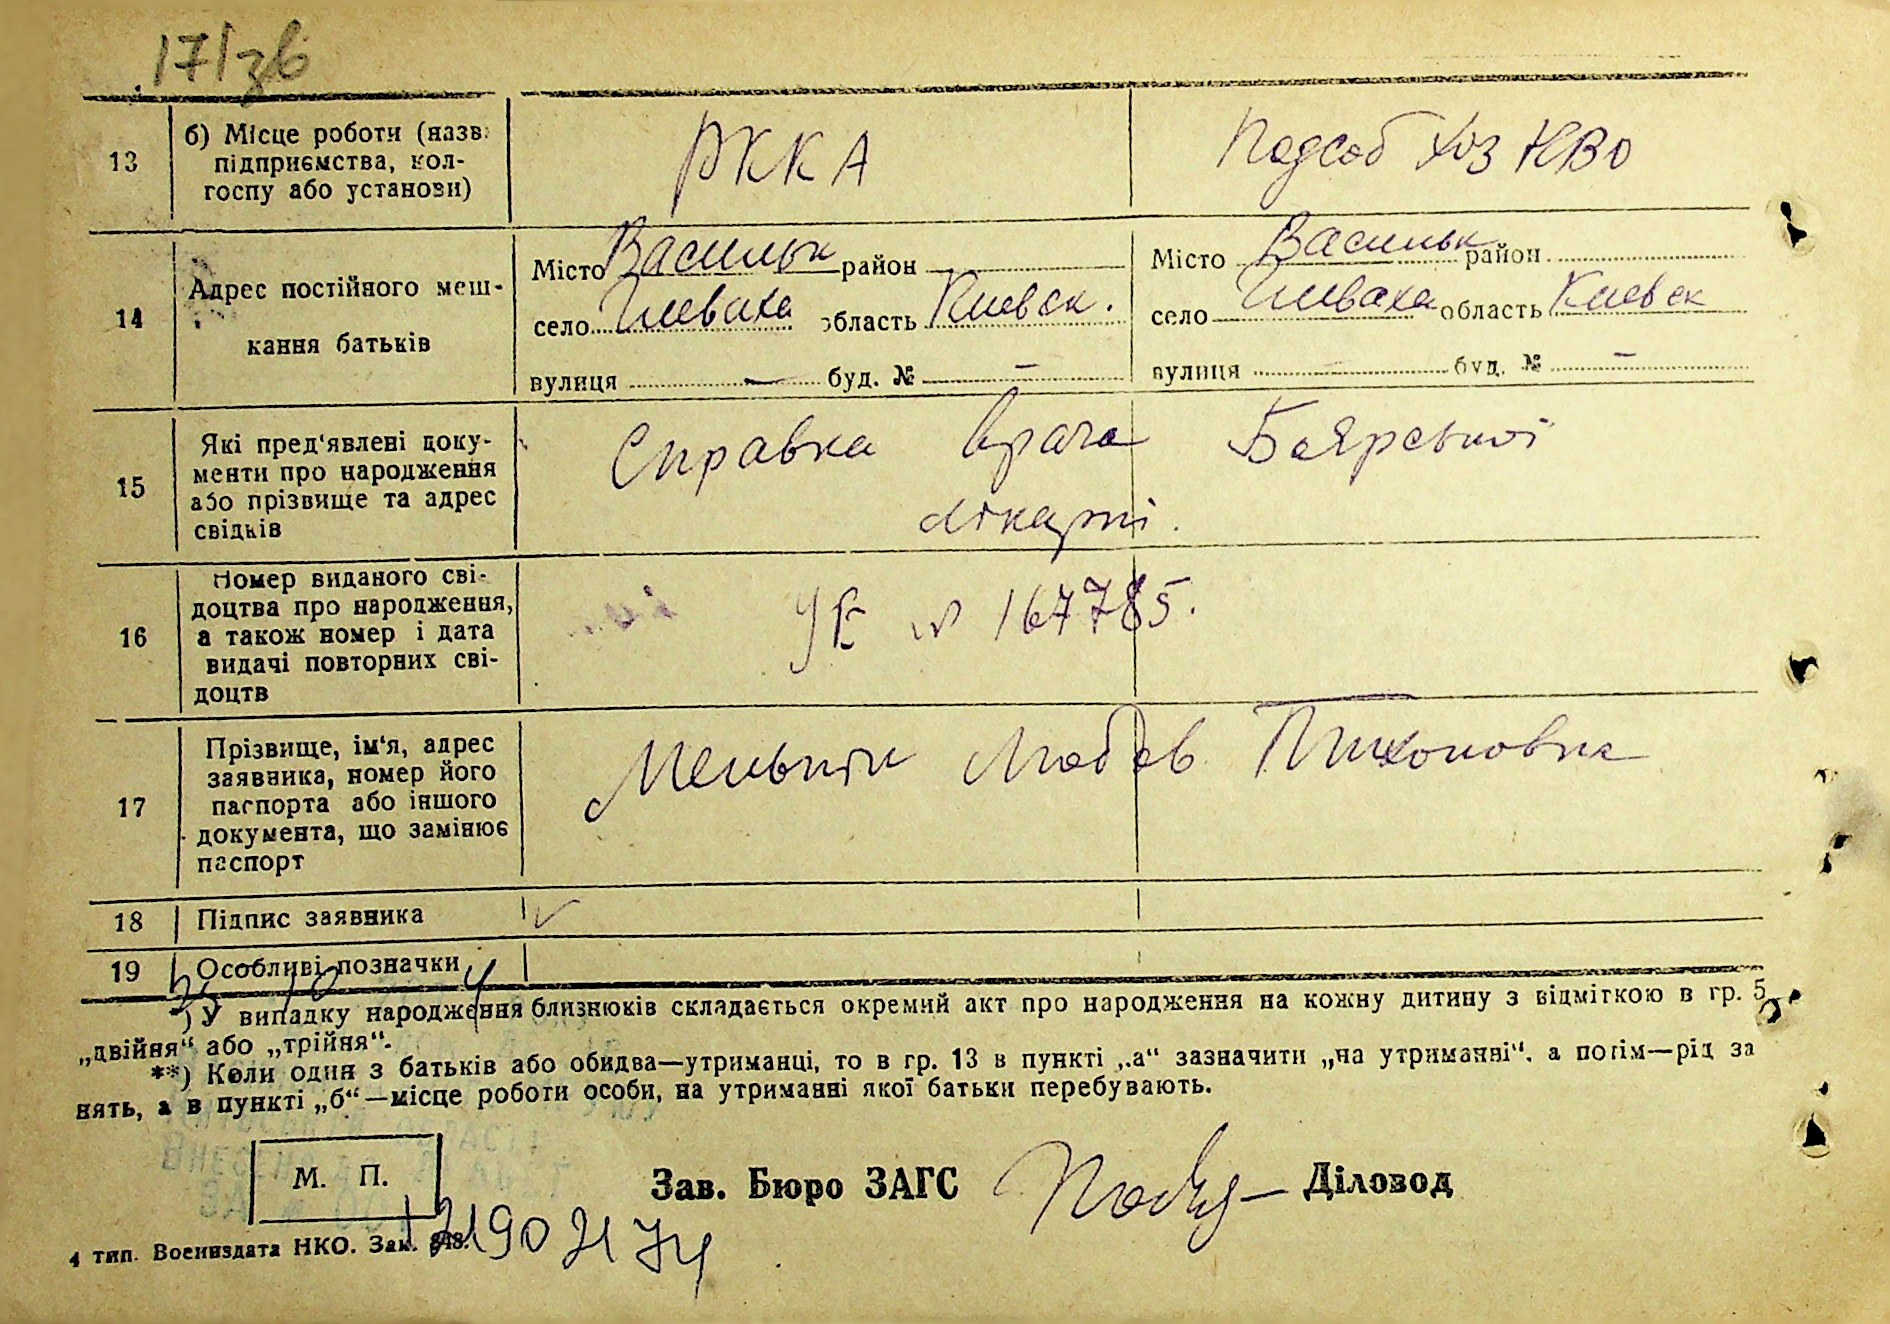 17/зв
13
б) Місце роботи (назв.
підприємства, кол-
госпу або установи)
РККА
Подсоб Хоз КВО
14
Адрес постійного меш-
кання батьків
Місто Васильк район
село Глеваха область Киевск.
вулиця — буд. № —
Місто Васильк район
село Глеваха область Киевск
вулиця — буд. № —
15
Які пред'явлені доку-
менти про народження
або прізвище та адрес
свідків
Справка врача Боярської
лікарні.
16
Номер виданого сві-
доцтва про народження,
а також номер і дата
видачі повторних сві-
доцтв
№ 167785.
17
Прізвище, ім'я, адрес
заявника, номер його
паспорта або іншого
документа, що замінює
паспорт
Любов Тихоновна
18
Підпис заявника
19
Особливі позначки
*) У випадку народження близнюків складається окремий акт про народження на кожну дитину з відміткою в гр. 5
„двійня“ або „трійня“.
**) Коли один з батьків або обидва—утриманці, то в гр. 13 в пункті „а“ зазначити „на утриманні“, а потім—рід за
нять, а в пункті „б“—місце роботи особи, на утриманні якої батьки перебувають.
М. П.
Зав. Бюро ЗАГС
Діловод
4 тип. Воениздата НКО. Зак.